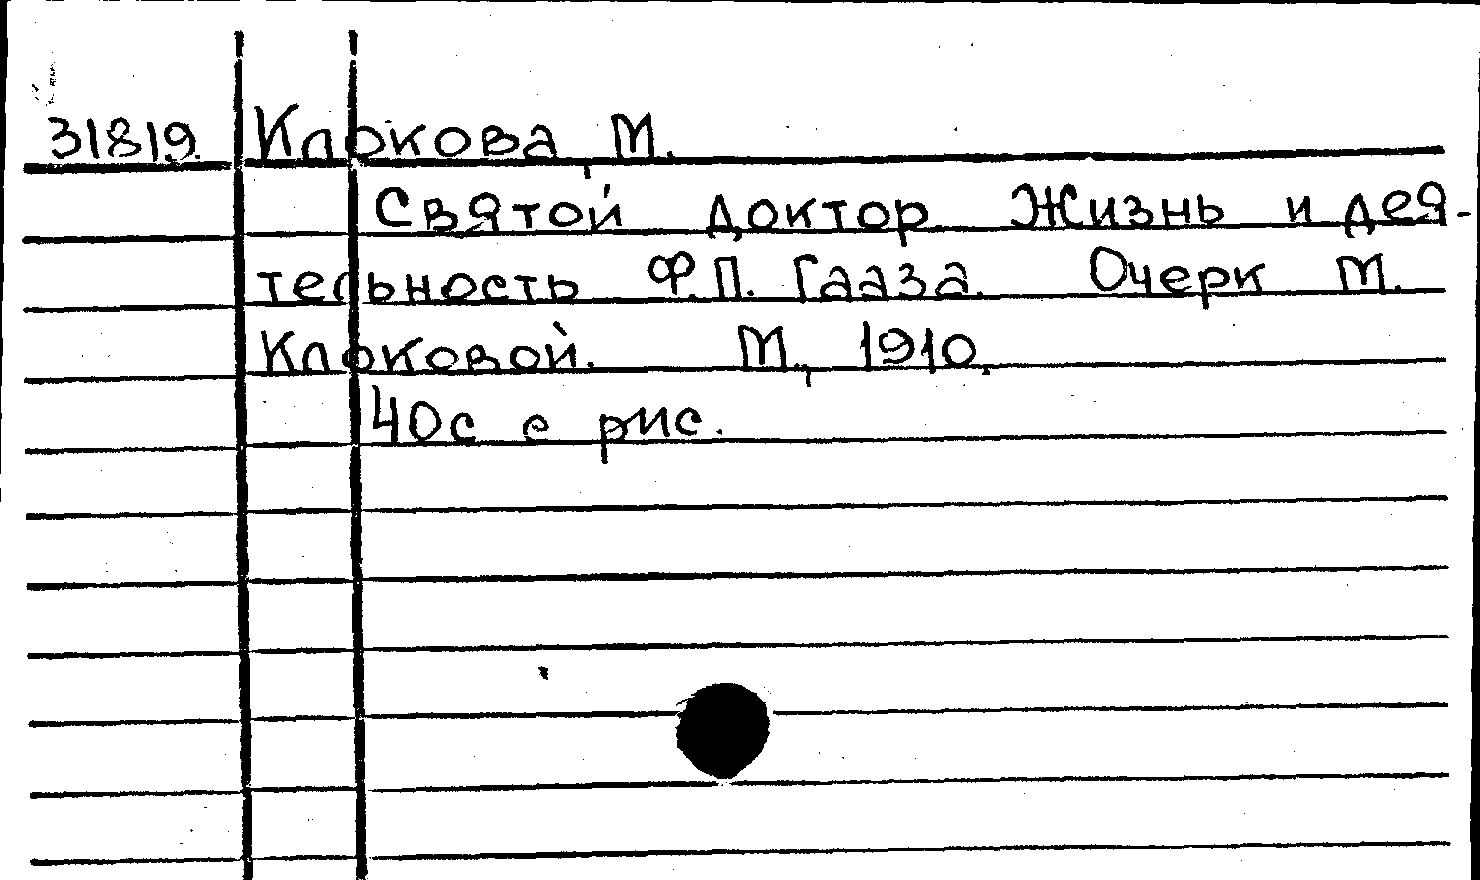 31819. Клокова, М.
Святой доктор. Жизнь и дея-
тельность Ф.П. Гааза. Очерк М.
Клоковой. М., 1910.
40с с рис.